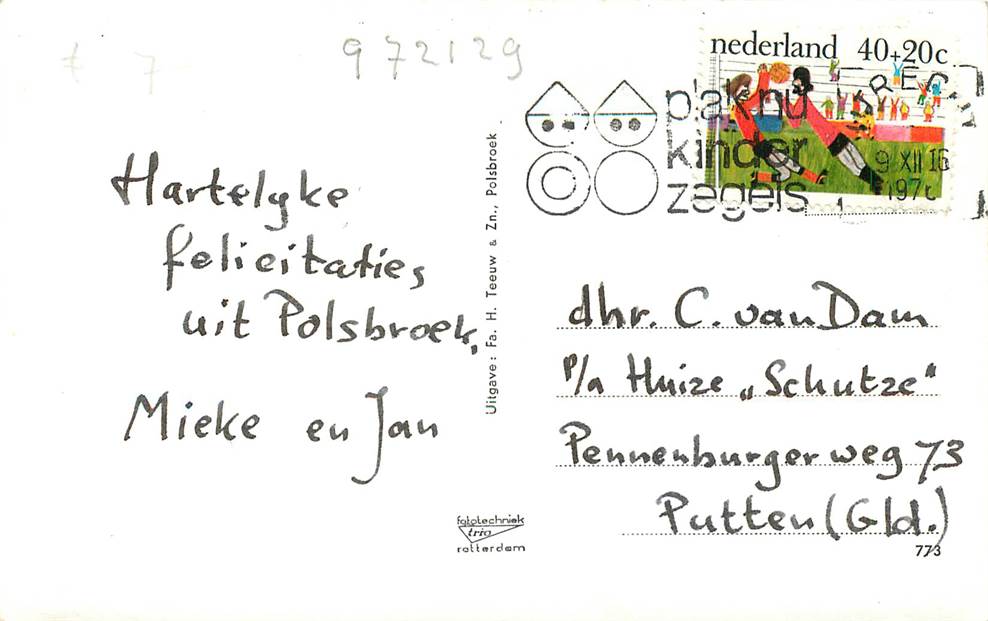 € 7
972129
nederland 40+20c
plak nu
kinder
zegels
9 XII 16
197
Hartelyke
felicitaties
uit Polsbroek,
Mieke en Jan
Uitgave: Fa. H. Teeuw & Zn., Polsbroek
fototechniek
trio
rotterdam
dhr. C. van Dam
p/a Huize „Schutze"
Pennenburgerweg 73
Putten (Gld.)
773